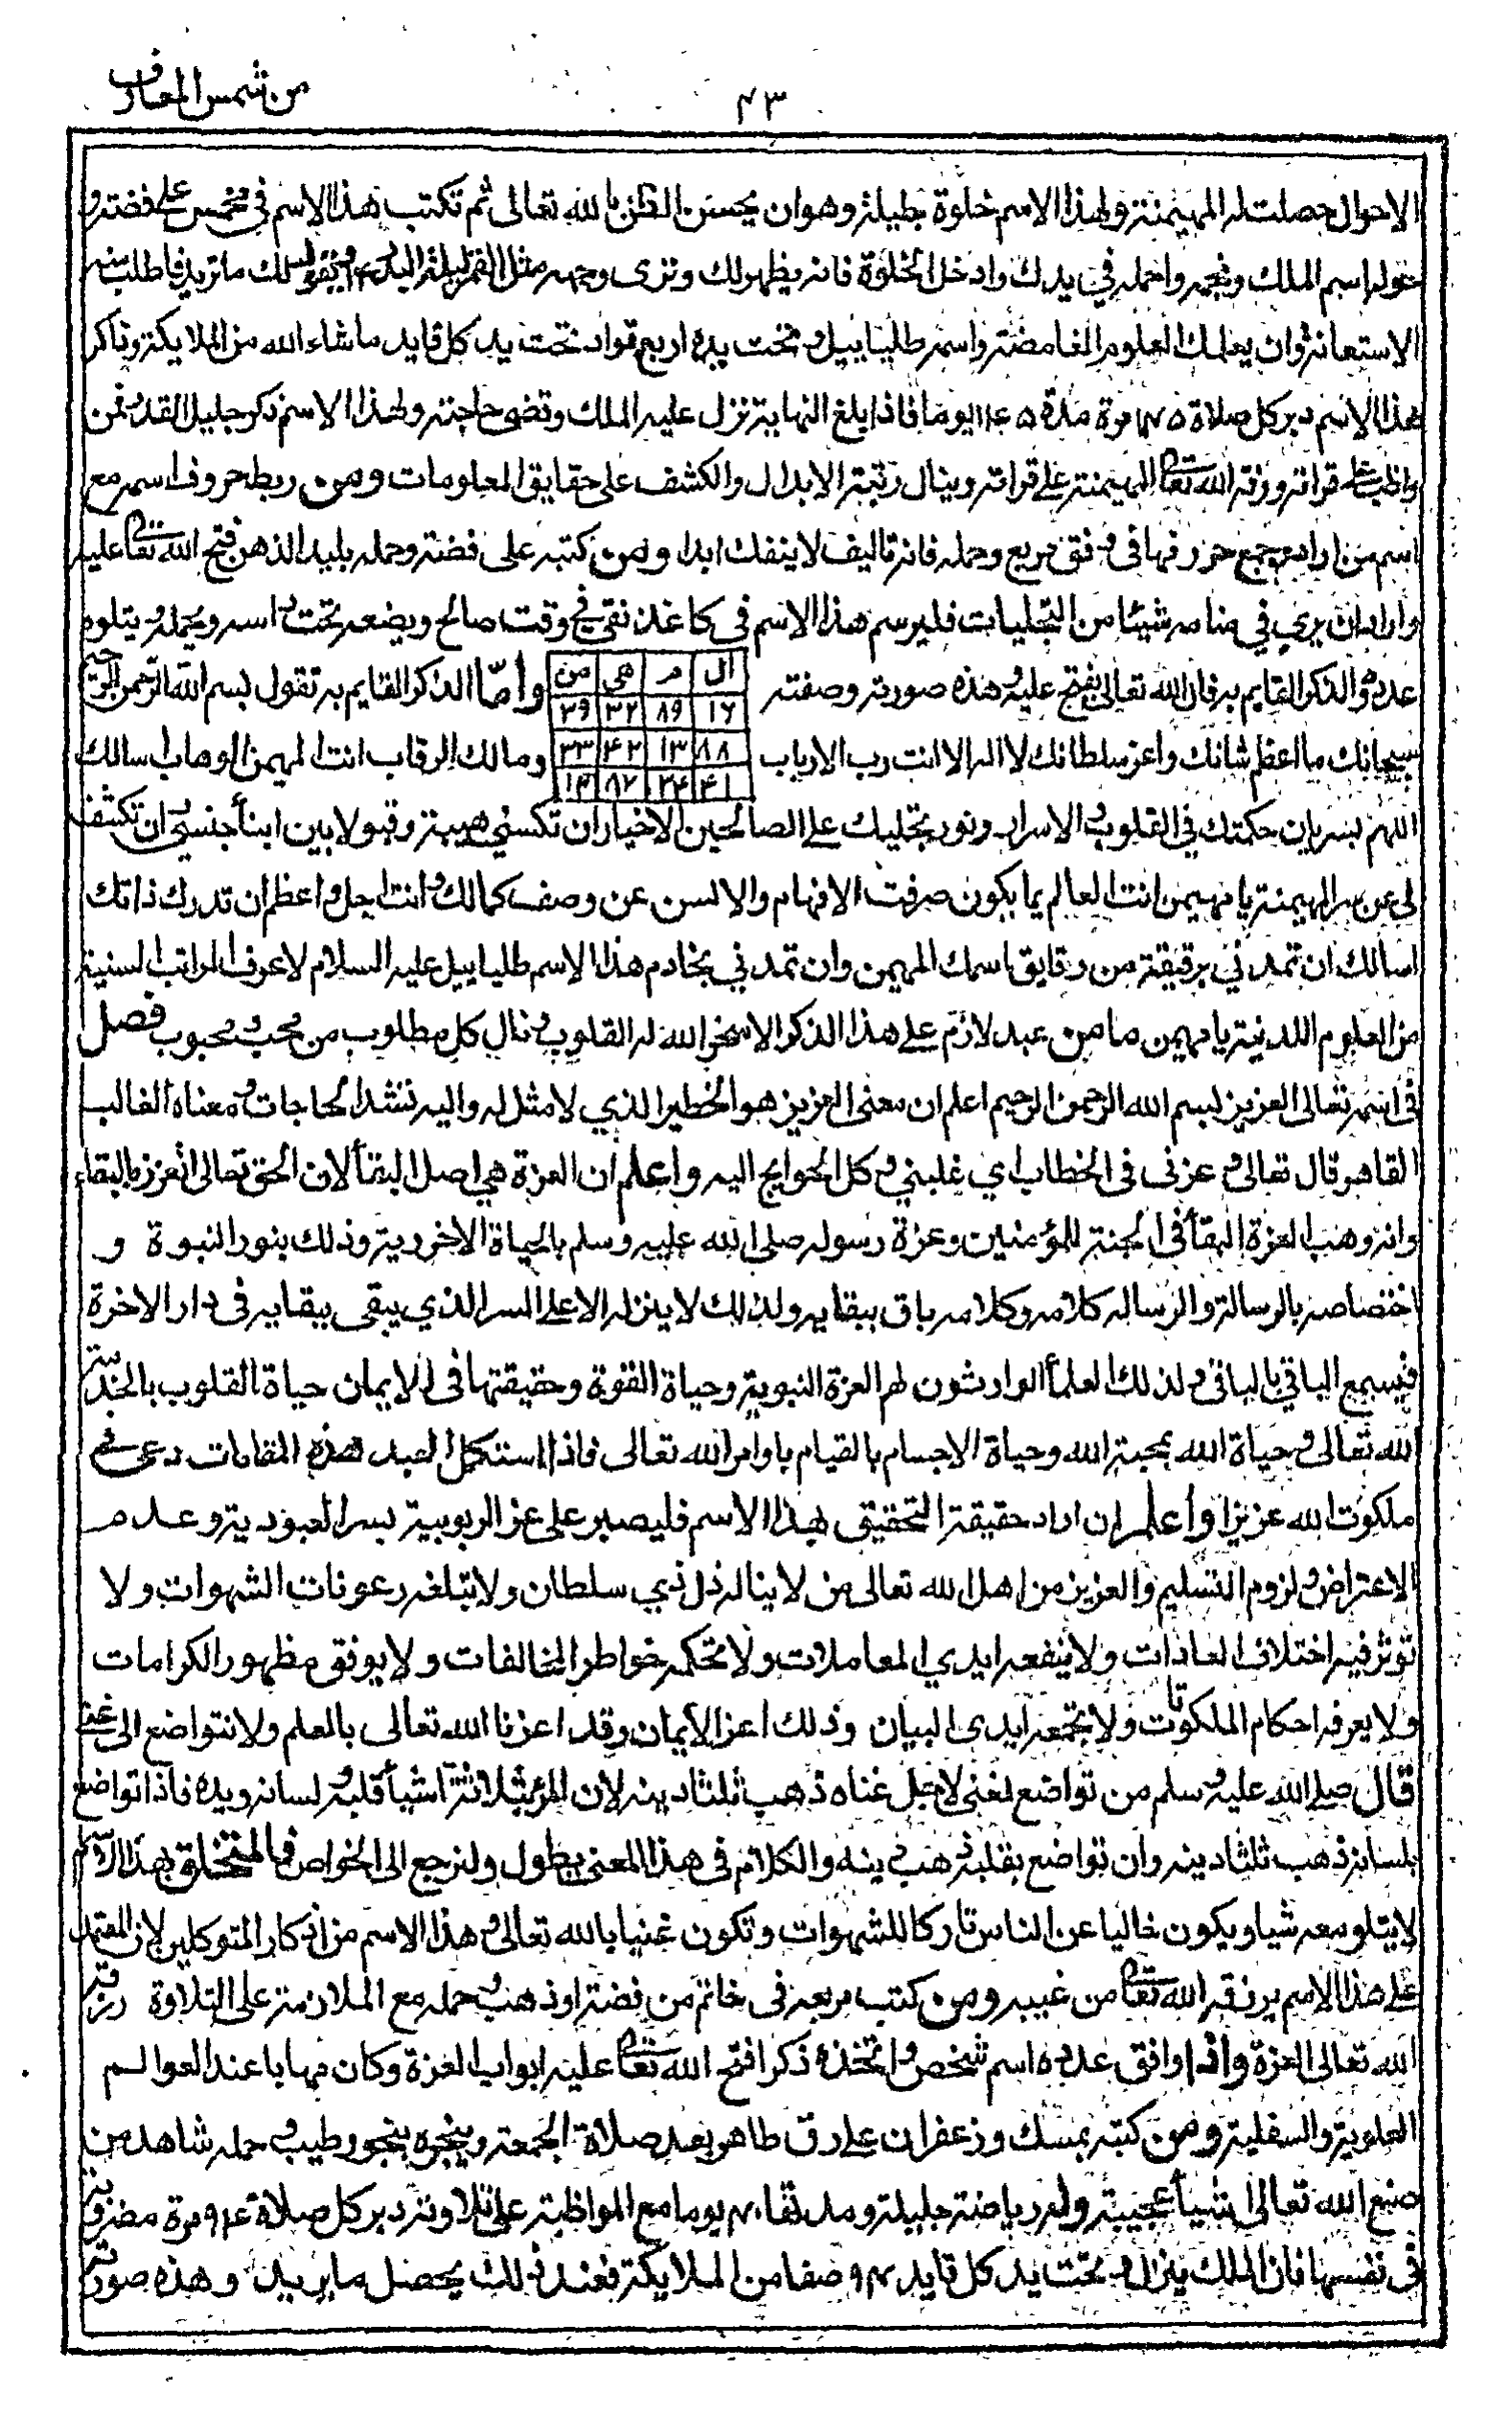 من شمس المعارف
٤٣
الاحوال حصلت له المهيمنة ولهذا الاسم خلوة جليلة وهو ان يحسن الظن بالله تعالى ثم تكتب هذا الاسم في مخمس على فضة و
حوله اسم الملك وبخره واحمله في يدك وادخل الخلوة فانه يظهر لك وترى وجهه مثل القمر ليلة البدر ويقول لك ما تريد فاطلب منه
الاستعانة وان يعلمك العلوم الغامضة واسمه طلياييل وتحت يده اربع قواد تحت يد كل قايد ما شاء الله من الملايكة وذاكر
هذا الاسم دبر كل صلاة ١٤٥ مرة مدة ١٤٥ يوما فاذا بلغ النهاية تنزل عليه الملك وقضى حاجته ولهذا الاسم ذكر جليل القدر فمن
واظب على قراته ورزقه الله تعالى المهيمنة على قراته وينال رتبة الابدال والكشف على حقايق المعلومات ومن ربط حروف اسمه مع
اسم من اراد وجمع حروفها في وفق مربع وحمله فانه تاليف لا ينفك ابدا ومن كتبه على فضة وحمله بليد الذهن فتح الله تعالى عليه
واراد ان يرى في منامه شيئا من التجليات فليرسم هذا الاسم في كاغذ نقي في وقت صالح ويضعه تحت راسه ويحمله ويتلوه
عدده والذكر القايم به فان الله تعالى يفتح عليه وهذه صورته وصفته
ال م هي من
١٦ ٨٩ ٣٢ ٣٩
٨٨ ١٣ ٤٢ ٣٣
٤١ ٣٤ ٨٧ ١٤
واما الذكر القايم به تقول بسم الله الرحمن الرحيم
سبحانك ما اعظم شانك واعز سلطانك لا اله الا انت رب الارباب ومالك الرقاب انت المهيمن الوهاب اسالك
اللهم بسريان حكمتك في القلوب والاسرار ونور تجليك على الصالحين الاخيار ان تكسني هيبة وقبولا بين ابنأ جنسي وان تكشف
لي عن سر المهيمنة يا مهيمن انت العالم بما يكون صرفت الافهام والالسن عن وصف كمالك وانت اجل واعظم ان تدرك ذاتك
اسالك ان تمدني برقيقة من رقايق اسمك المهيمن وان تمدني بخادم هذا الاسم طلياييل عليه السلام لاعرف المراتب السنية
من العلوم اللدنية يا مهيمن ما من عبد لازم على هذا الذكر الا سخر الله له القلوب ونال كل مطلوب من محب ومحبوب فصل
في اسمه تعالى العزيز بسم الله الرحمن الرحيم اعلم ان معنى العزيز هو الخطير الذي لا مثل له واليه تشد الحاجات ومعناه الغالب
القاهر قال تعالى وعزني في الخطاب اي غلبني وكل الحوايج اليه واعلم ان العزة هي اصل البقأ لان الحق تعالى انعزز بالبقاء
وانه وهب العزة البقأ في الجنة للمؤمنين وعزة رسوله صلى الله عليه وسلم بالحياة الاخروية وذلك بنور النبوة و
اختصاصه بالرسالة والرساله كلامه وكلامه باق ببقايه ولذلك لا ينزله الا على السر الذي يبقى ببقايه في دار الاخرة
فيسمع الباقي بالباقي ولذلك العلمأ الوارثون لهم العزة النبوية وحياة القوة وحقيقتها في الايمان حياة القلوب بالخدمة
لله تعالى وحياة الله بمحبة الله وحياة الاجسام بالقيام باوامر الله تعالى فاذا استكمل العبد هذه المقامات دعي في
ملكوت الله عزيزا واعلم ان اراد حقيقة التحقيقى بهذا الاسم فليصبر على عز الربوبية بسر العبودية وعدم
الاعتراض ولزوم التسليم والعزيز من اهل الله تعالى من لا يناله ذل ذي سلطان ولا تبلغه رعونات الشهوات ولا
توثر فيه اختلاف العادات ولا ينفعه ايدي المعاملات ولا تحكمه خواطر المخالفات ولا يوفق مظهور الكرامات
ولا يعرفه احكام الملكوتات ولا تجمعه ايدى البيان وذلك اعز الأيمان وقد اعزنا الله تعالى بالعلم ولا نتواضع الى غني
قال صلى الله عليه وسلم من تواضع لغني لاجل غناه ذهب ثلثا دينه لان المرء ثلاثة اشيأ قلبه ولسانه ويده فاذا تواضع
بلسانه ذهب ثلثا دينه وان تواضع بقلبه ذهب دينه والكلام في هذا المعنى يطول ولنرجع الى الخواص فالمتخلق بهذا الاسم
لا يتلو معه شيا ويكون خاليا عن الناس تاركا للشهوات وتكون غنيا بالله تعالى وهذا الاسم من اذكار المتوكلين لان المعتمد
على هذا الاسم يرزقه الله تعالى من غيبه ومن كتب مربعه في خاتم من فضة او ذهب وحمله مع الملازمة على التلاوة رزقه
الله تعالى العزة واذا وافق عدده اسم شخص واتخذه ذكرا فتح الله تعالى عليه ابواب العزة وكان مهابا عند العوالم
العلوية والسفلية ومن كتبه بمسك وزعفران على رق طاهر بعد صلاة الجمعة وبخره ببخور طيب وحمله شاهد من
صنع الله تعالى اشيأ عجيبة وله رياضة جليلة ومدتها ٤٠ يوما مع المواظبة على تلاوته دبر كل صلاة ٩٤ مرة مضروبة
في نفسها فان الملك ينزل وتحت يد كل قايد ٩٤ صفا من الملايكة فعند ذلك يحصل ما يريد وهذه صورته